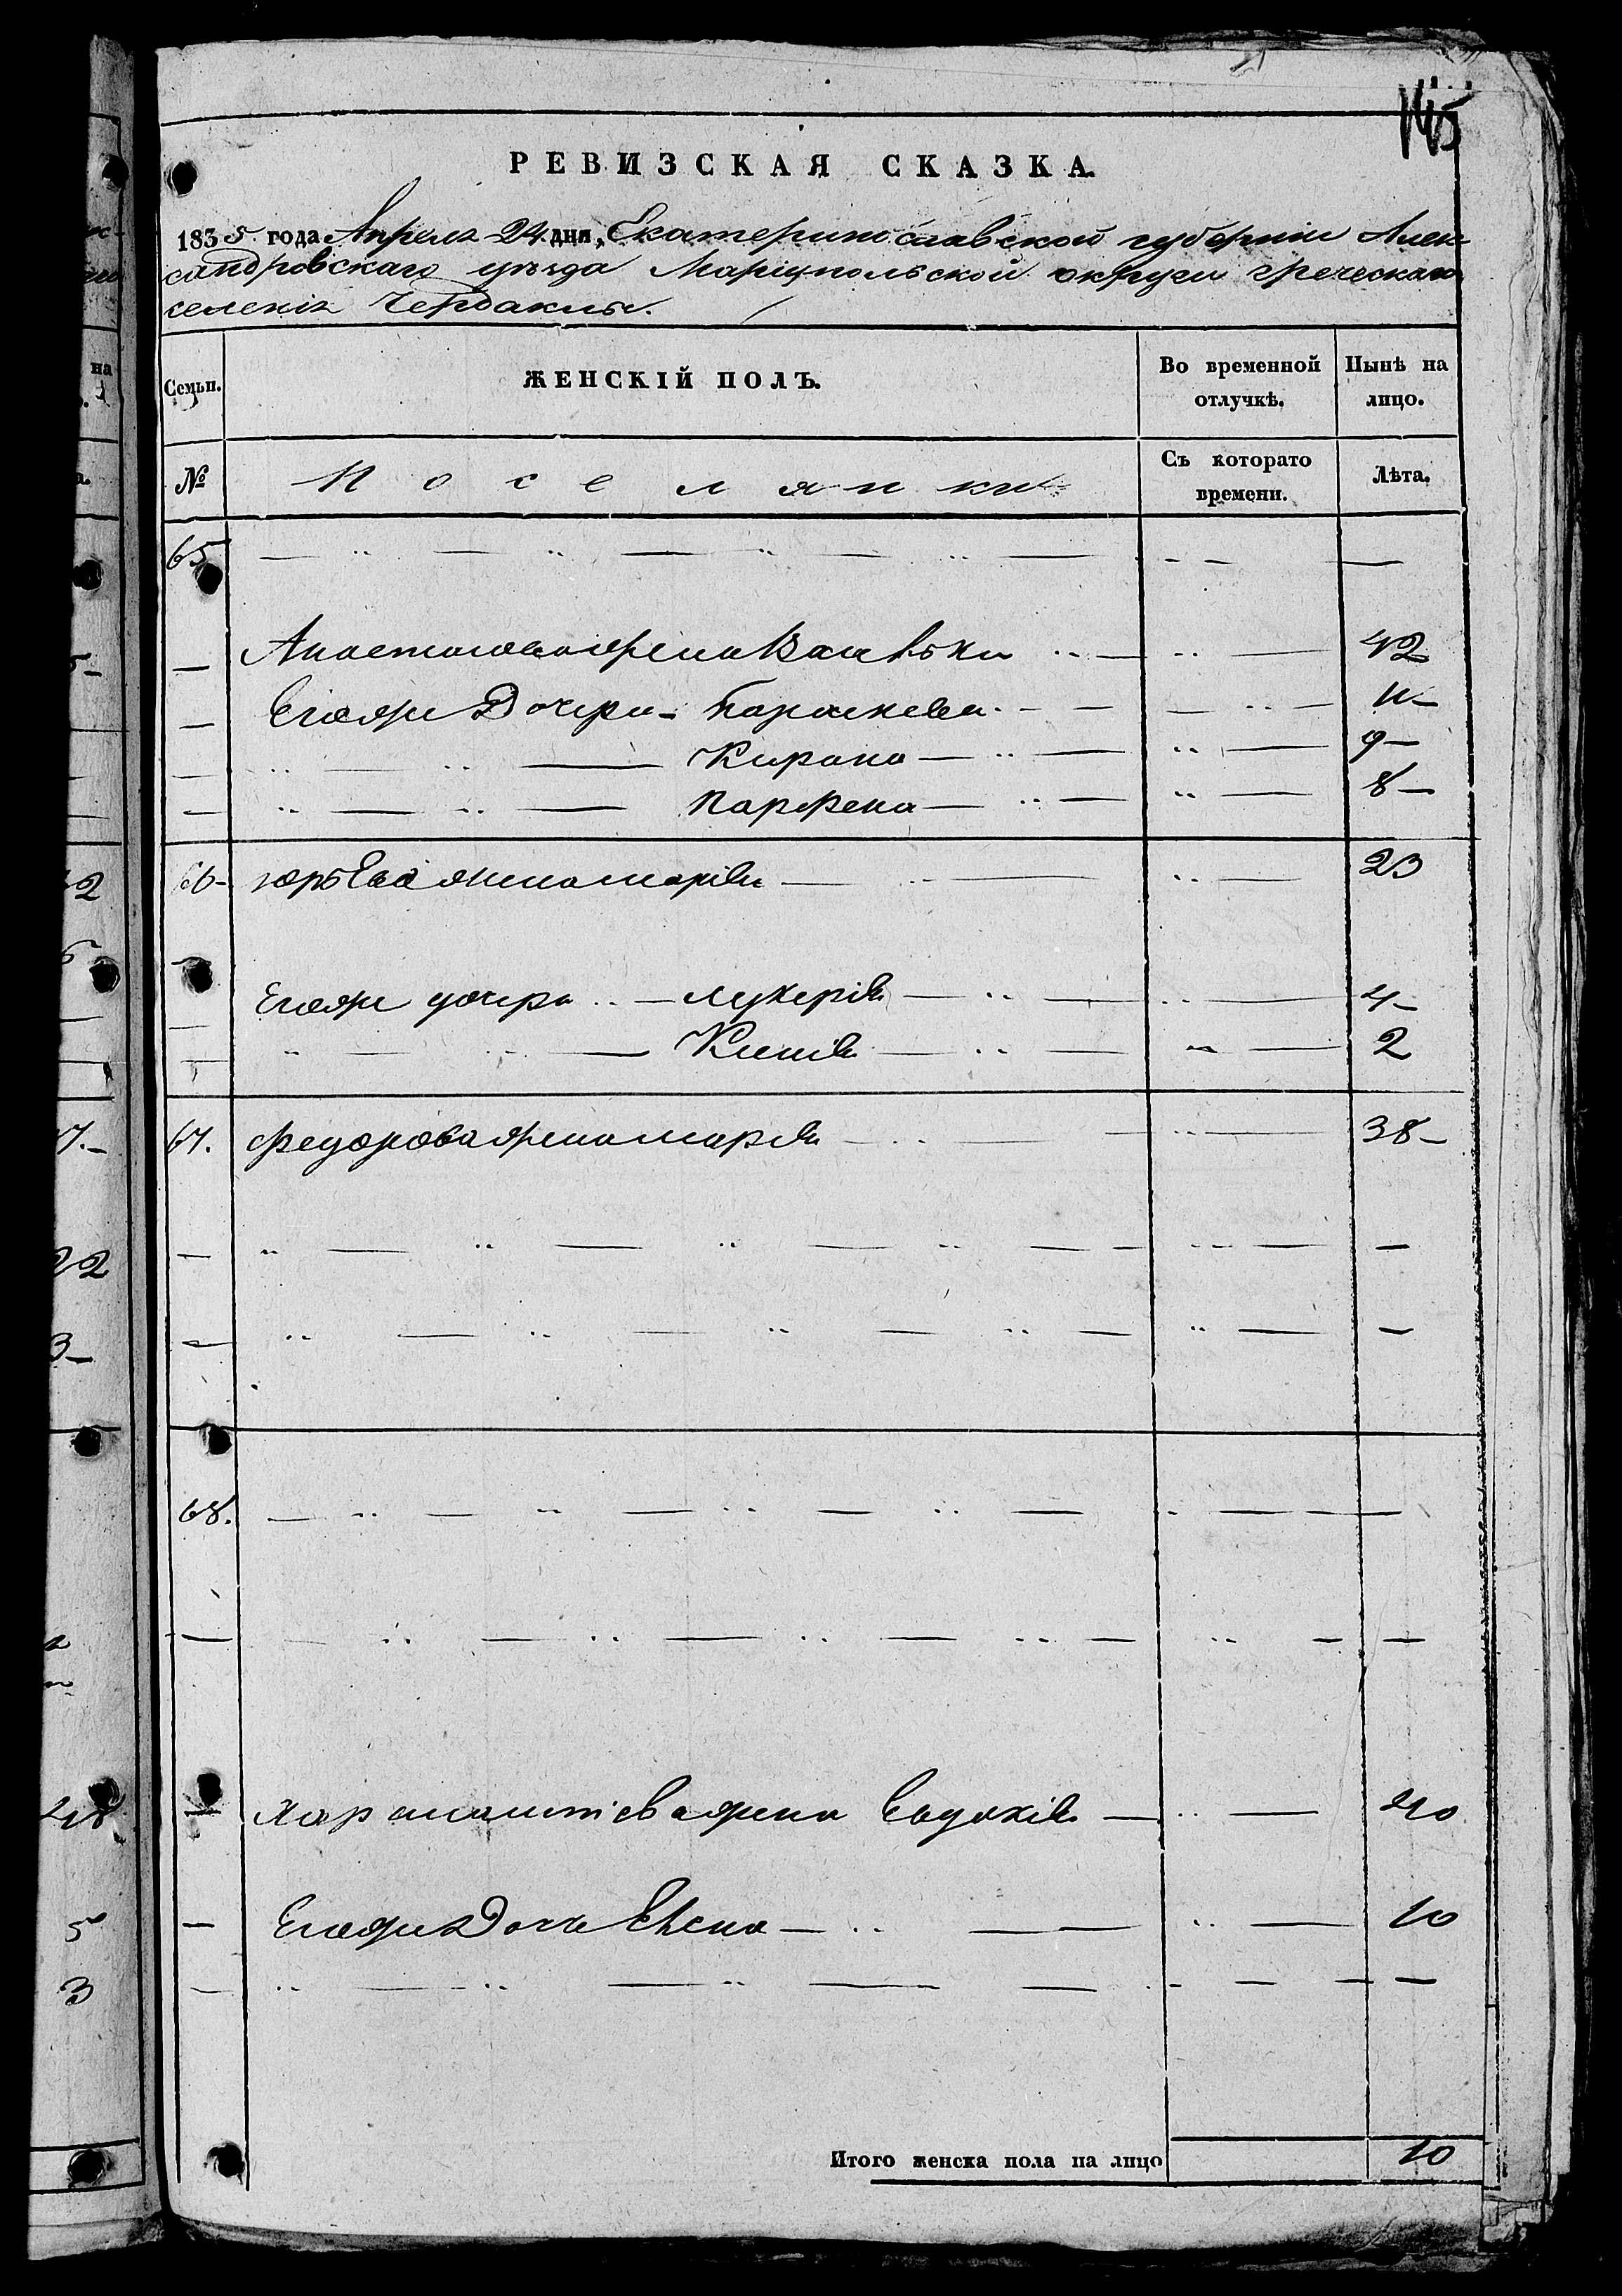 145
РЕВИЗСКАЯ СКАЗКА.
1835 года Апреля 24 дня, Екатеринославской губерніи Алек-
сандровскаго уѣзда Маріупольской округи греческаго
селенія Чердаклы.
Семьи. ЖЕНСКІЙ ПОЛЪ. Во временной отлучкѣ. Нынѣ на лицо.
№ Поселянки Съ которато времени. Лѣта.
65
жена 42
Егояже Дочери Параскева 11
Кирана 9
Парфена 8
66 юрьева жена марія 23
Егояже дочери лукерія 4
Киикія 2
67. федорова жена марія 38
68.
жена Евдокія 40
Егояже Дочь Елена 10
Итого женска пола на лицо 10